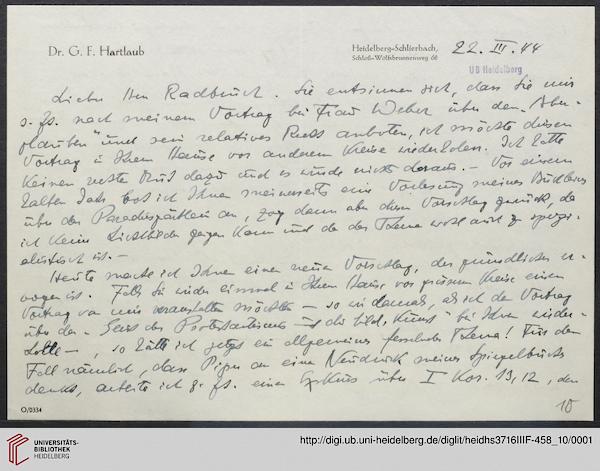 Dr. G. F. Hartlaub
Heidelberg-Schlierbach,
Schloß-Wolfsbrunnenweg 66
22. III. 44
UB Heidelberg
Lieber Herr Radbruch. Sie entsinnen sich, dass Sie mir
s. Zt. nach meinem Vortrag bei Frau Weber über den "Aber-
glauben" und sein relatives Recht anboten, ich möchte diesen
Vortrag in Ihrem Hause vor anderem Kreise wiederholen. Ich hatte
keinen rechten Mut dazu und es wurde nichts daraus. — Vor einem
halben Jahr bot ich Ihnen meinerseits eine Vorlesung meines Büchleins
über das Paradiesgärtlein an, zog dann aber diesen Vorschlag zurück, da
ich keine Lichtbilder zeigen kann und da das Thema wohl auch zu spezi-
alistisch ist. —
Heute mache ich Ihnen einen neuen Vorschlag, der gründlicher er-
wogen ist. Falls Sie wieder einmal in Ihrem Hause vor grösserem Kreise einen
Vortrag von mir veranstalten möchten — so wie damals, als ich den Vortrag
über den "Geist des Protestantismus und die bild. Kunst" bei Ihnen wieder-
holte —, so hätte ich jetzt ein allgemeines fesselndes Thema! Für den
Fall nämlich, dass Piper an eine Neudruck meines Spiegelbuchs
denkt, arbeite ich z. Zt. einen Exkurs über I Kor. 13,12, den
O/0334
10
UNIVERSITÄTS-
BIBLIOTHEK
HEIDELBERG
http://digi.ub.uni-heidelberg.de/diglit/heidhs3716IIIF-458_10/0001